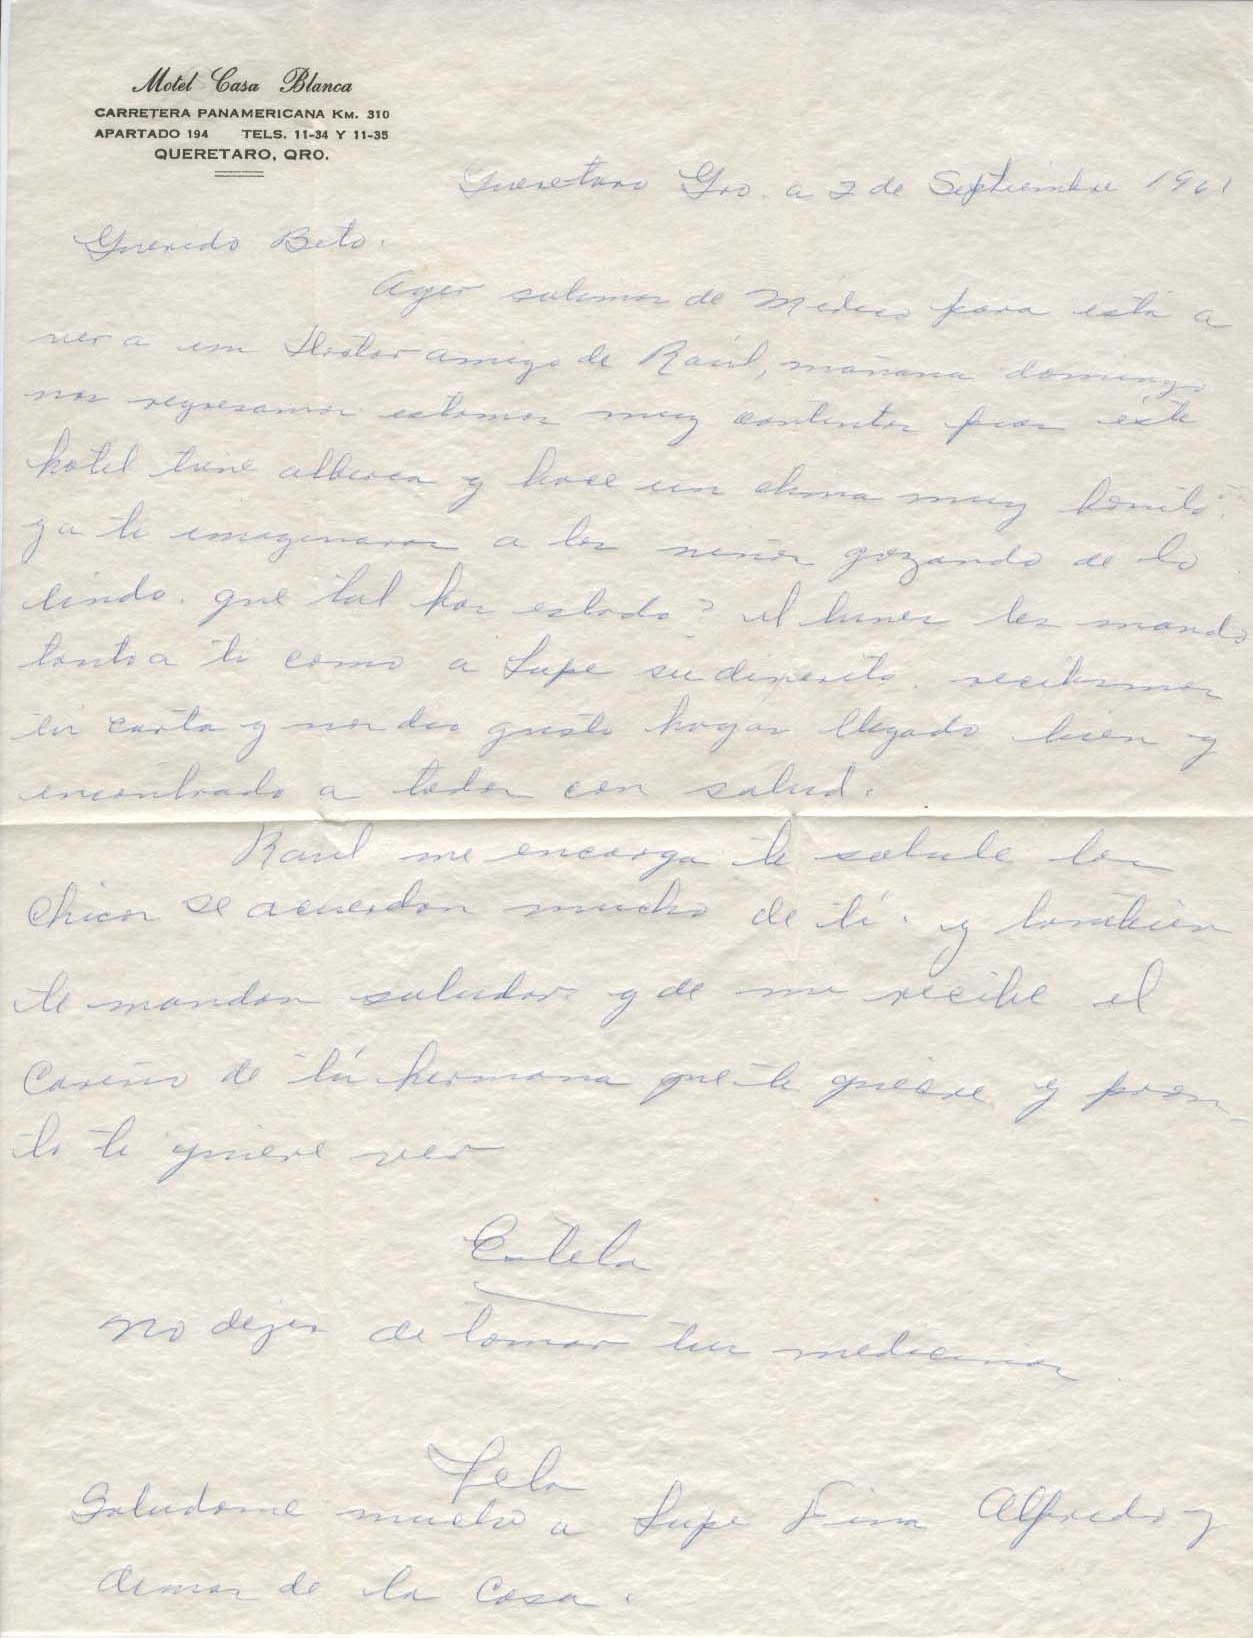 Motel Casa Blanca
CARRETERA PANAMERICANA KM. 310
APARTADO 194 TELS. 11-34 Y 11-35
QUERETARO, QRO.
Queretaro Qro. a 2 de Septiembre 1961
Querido Beto.
Ayer salimos de Mexico para está a
ver a un Doctor amigo de Raúl, mañana domingo
nos regresamos estamos muy contentos pues éste
hotel tiene alberca y hace un clima muy bonito.
ya te imaginaras a los niños gozando de lo
lindo. que tal has estado? el lunes les mando
tanto a ti como a Lupe su dinerito. recibimos
tú carta y nos dio gusto hayas llegado bien y
encontrado a todos con salud.
Raul me encarga te salude los
chicos se acuerdan mucho de tí. y tambien
te mandan saludos. y de mi recibe el
Cariño de tú hermana que te quiere y pron-
to te quiere ver
Estela
no dejes de tomar tus medicinas
Tela
Saludame mucho a Lupe Fina Alfredo y
demas de la casa.